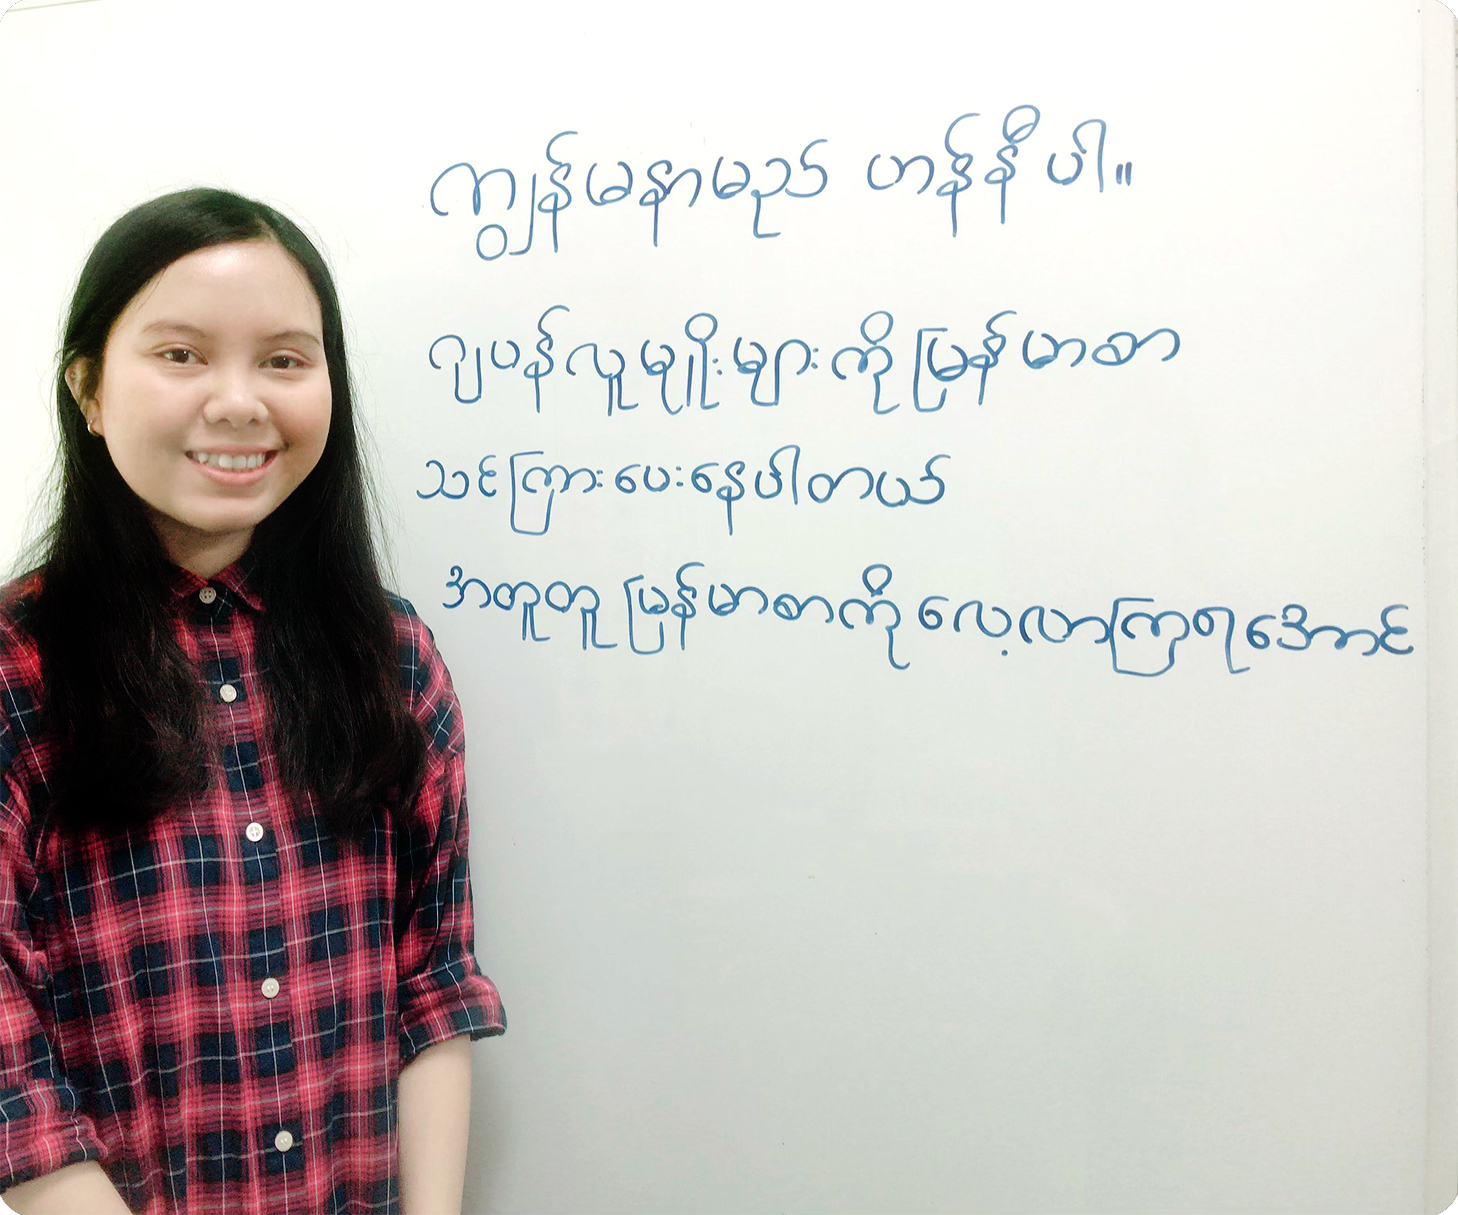 ကျွန်မနာမည် ဟန်နီ ပါ။
ဂျပန်လူမျိုးများကို မြန်မာစာ
သင်ကြားပေးနေပါတယ်
အတူတူ မြန်မာစာကို လေ့လာကြရအောင်